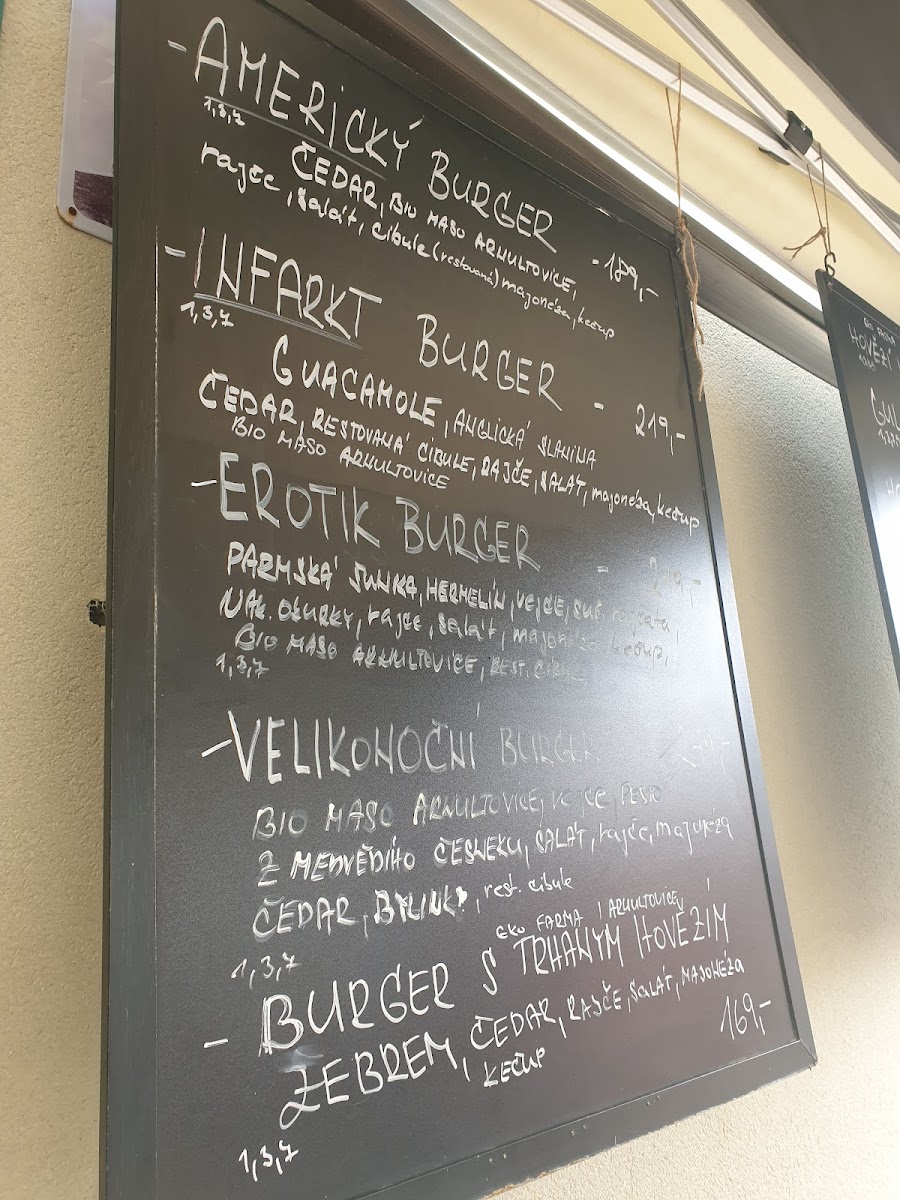 - AMERICKÝ BURGER - 189,-
1,3,7
ČEDAR, BIO MASO ARNULTOVICE,
rajče, salát, cibule (restovaná) majonéza, kečup
- INFARKT BURGER - 219,-
1,3,7
GUACAMOLE, ANGLICKÁ SLANINA
ČEDAR, RESTOVANÁ CIBULE, RAJČE, SALÁT, majonéza, kečup
BIO MASO ARNULTOVICE
- EROTIK BURGER - 219,-
PARMSKÁ ŠUNKA, HERMELÍN, vejce, suš. rajčata,
NAK. OKURKY, rajče, salát, majonéza, kečup,
BIO MASO ARNULTOVICE, REST. CIBULE
1,3,7
- VELIKONOČNÍ BURGER
BIO MASO ARNULTOVICE, vejce, PESTO
Z MEDVĚDÍHO ČESNEKU, SALÁT, rajče, majonéza
ČEDAR, BYLINKY, rest. cibule
1,3,7
EKO FARMA ARNULTOVICE
- BURGER S TRHANÝM HOVĚZÍM
ŽEBREM, ČEDAR, RAJČE, SALÁT, MAJONÉZA
KEČUP 169,-
1,3,7
HOVĚZÍ